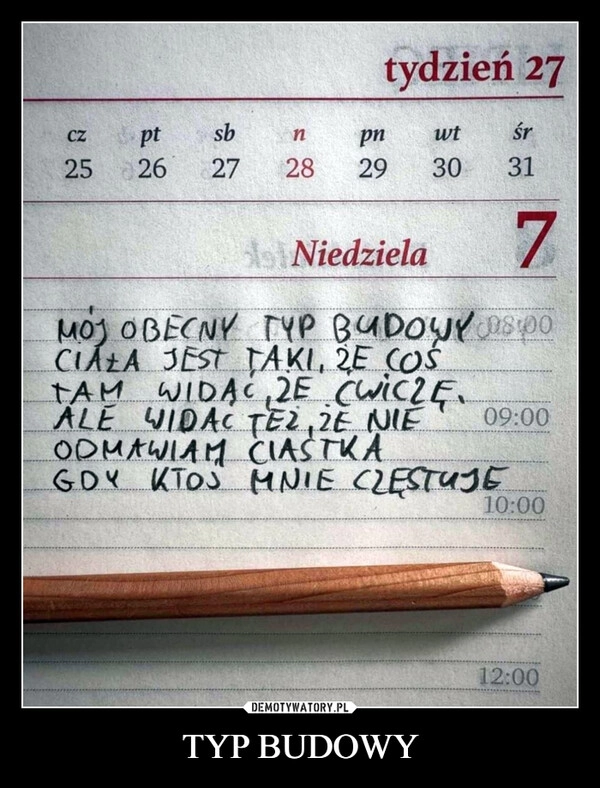 tydzień 27
cz pt sb n pn wt śr
25 26 27 28 29 30 31
Niedziela 7
MÓJ OBECNY TYP BUDOWY 08:00
CIAŁA JEST TAKI, ŻE COŚ
TAM WIDAĆ, ŻE ĆWICZĘ,
ALE WIDAĆ TEŻ, ŻE NIE 09:00
ODMAWIAM CIASTKA
GDY KTOŚ MNIE CZĘSTUJE
10:00
12:00
DEMOTYWATORY.PL
TYP BUDOWY